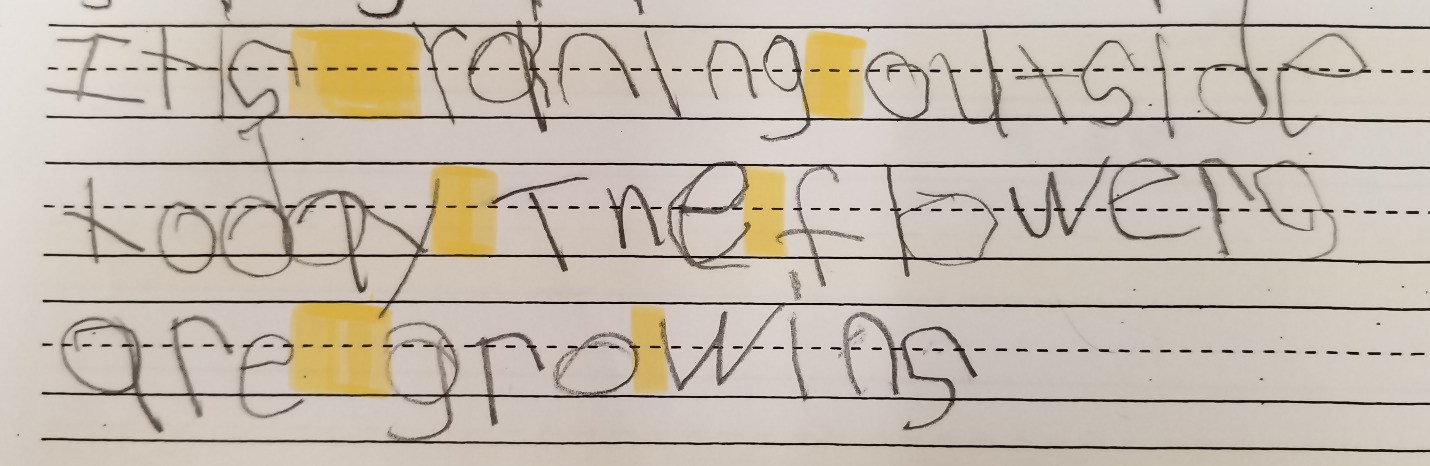 It is raining outside
today The flowers
are growing